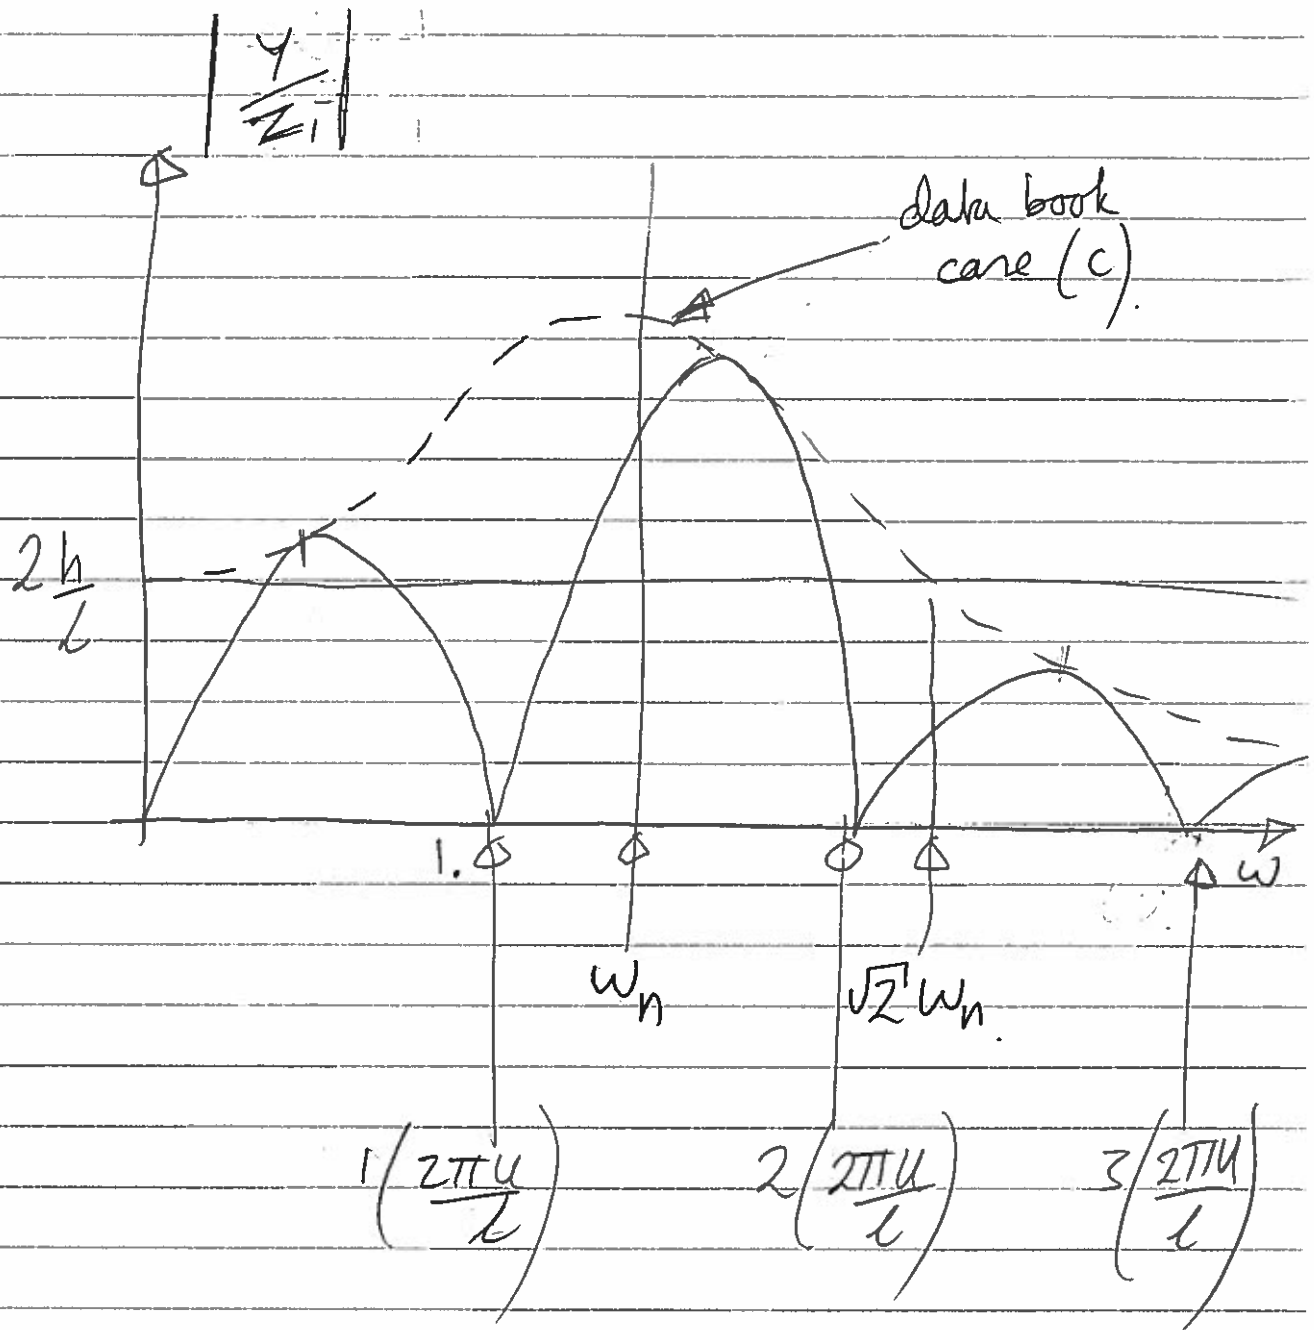 |Y/Z₁|
data book
case (c).
2h/L
1.
ω
ωn
√2 ωn.
1(2πU/L)
2(2πU/L)
3(2πU/L)